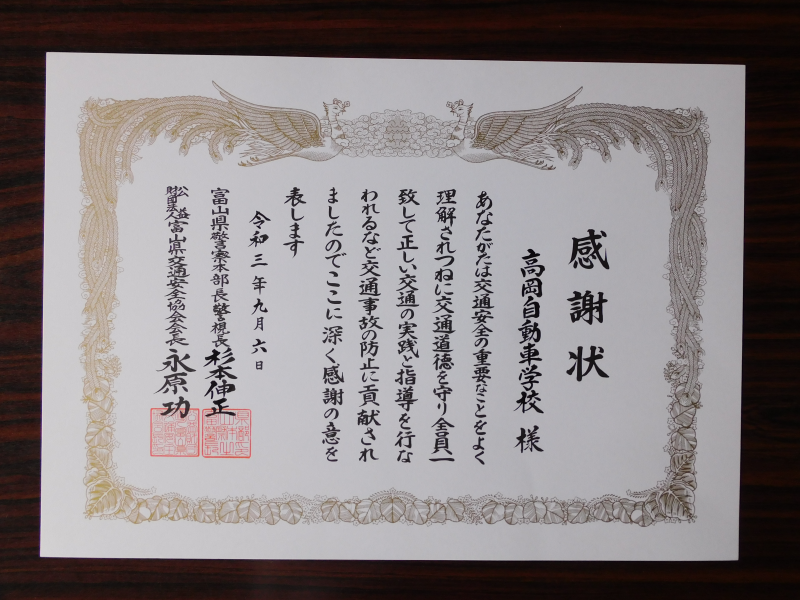 感謝状
高岡自動車学校 様
あなたがたは交通安全の重要なことをよく
理解されつねに交通道徳を守り全員一
致して正しい交通の実践と指導を行な
われるなど交通事故の防止に貢献され
ましたのでここに深く感謝の意を
表します
令和三年九月六日
富山県警察本部長警視長 杉本伸正
公益財団法人富山県交通安全協会会長 永原功